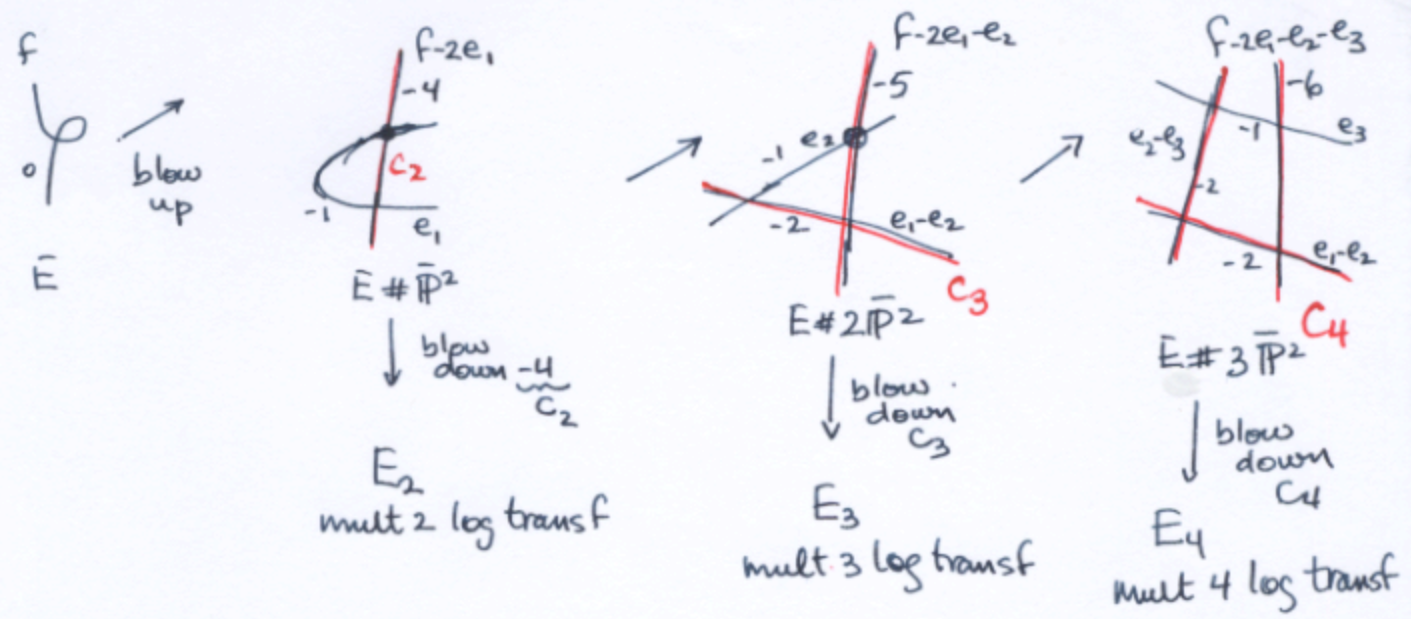 f
0
E
blow
up
f-2e₁
-4
C₂
-1
e₁
E # P̄²
blow
down -4
C₂
E₂
mult 2 log transf
f-2e₁-e₂
-5
e₂
-1
-2
e₁-e₂
C₃
E # 2P̄²
blow
down
C₃
E₃
mult 3 log transf
f-2e₁-e₂-e₃
-6
e₃
-1
e₂-e₃
-2
-2
e₁-e₂
C₄
E # 3P̄²
blow
down
C₄
E₄
mult 4 log transf